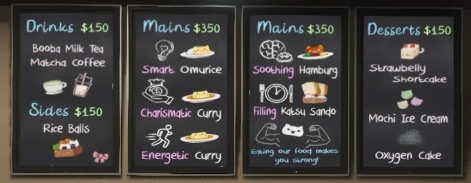 Drinks $150
Booba Milk Tea
Matcha Coffee
Sides $150
Rice Balls
Mains $350
Smart Omurice
Charismatic Curry
Energetic Curry
Mains $350
Soothing Hamburg
Filling Katsu Sando
Eating our food makes
you strong!
Desserts $150
Strawbelly
Shortcake
Mochi Ice Cream
Oxygen Cake